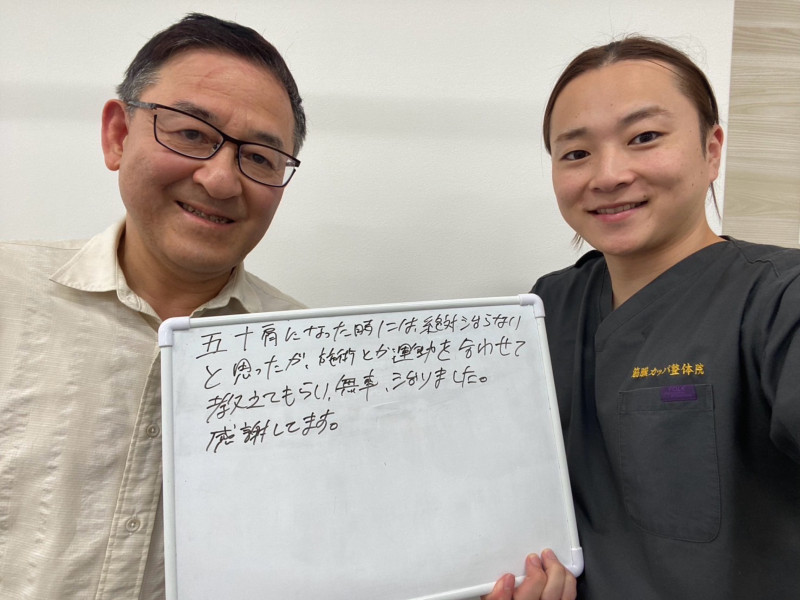 五十肩になった時には、絶対治らない
と思ったが、施術とか運動を合わせて
教えてもらい、無事、治りました。
感謝してます。
筋膜カッパ整体院